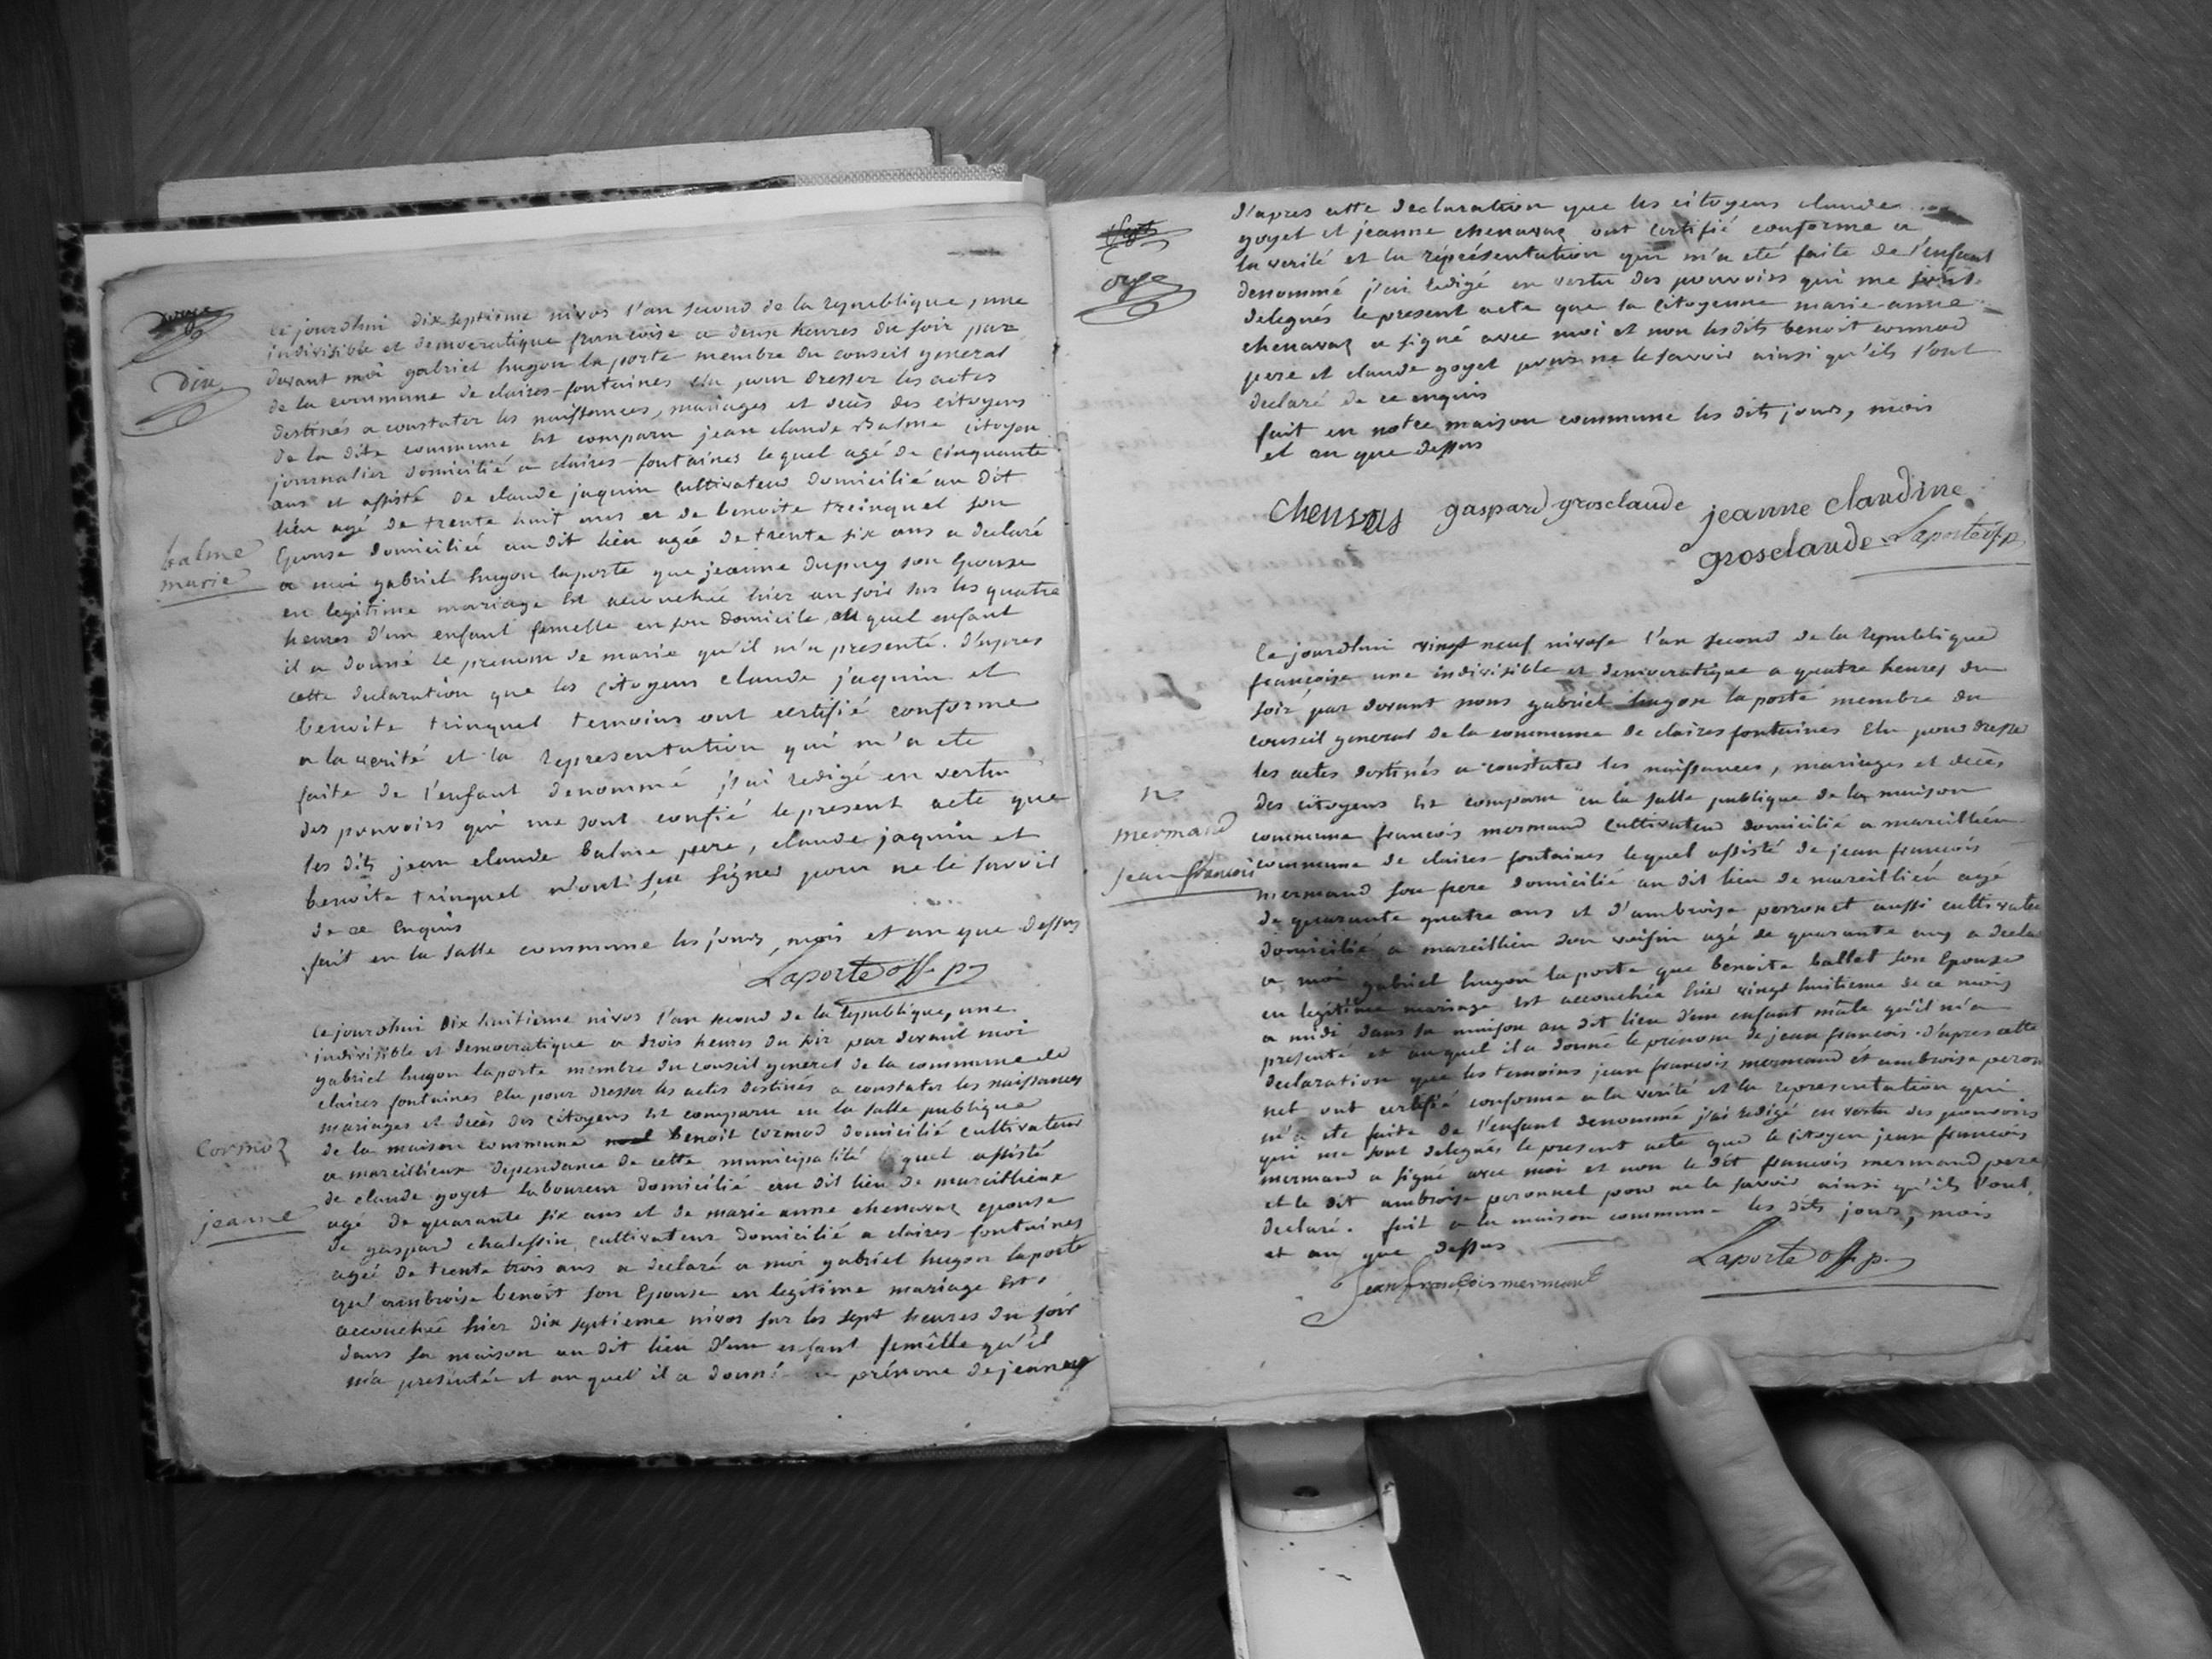 dix
ce jourdhui dix septieme nivos l'an second de la republique, une
indivisible et democratique françoise a deux heures du soir par
devant moi gabriel hugon laporte membre du conseil general
de la commune de claires-fontaines elu pour dresser les actes
destinés a constater les naissances, mariages et decès des citoyens
de la dite commune est comparu jean claude Balme citoyen
journalier domicilié a claires-fontaines lequel agé de cinquante
ans et assisté de claude jaquin cultivateur domicilié au dit
lieu agé de trente huit ans et de benoite treinquet son
Epouse domiciliée au dit lieu agée de trente six ans a declaré
balme
marie
a moi gabriel hugon laporte que jeanne dupuy son Epouse
en legitime mariage est accouchée hier au soir sur les quatre
heures d'un enfant femelle en son domicile, au quel enfant
il a donné le prenom de marie qu'il m'a presenté. d'apres
cette declaration que les citoyens claude jaquin et
benoite trinquet temoins ont certifié conforme
a la verité et la representation qui m'a ete
faite de l'enfant denommé j'ai redigé en vertu
des pouvoirs qui me sont confié le present acte que
les dits jean claude balme pere, claude jaquin et
benoite trinquet n'ont sçu signer pour ne le savoir
de ce Enquis
fait en la salle commune les jours, mois et an que dessus
Laporte off. p.
ce jourdhui dix huitieme nivos l'an second de la republique, une
indivisible et democratique a trois heures du soir par devant moi
gabriel hugon laporte membre du conseil general de la commune de
claires fontaines elu pour dresser les actes destinés a constater les naissances
mariages et decès des citoyens est comparu en la salle publique
Cormoz
de la maison commune benoit cormod domicilié cultivateur
a marcillieux dependance de cette municipalité lequel assisté
de claude goyet laboureur domicilié au dit lieu de marcillieux
jeanne
agé de quarante six ans et de marie anne chenavaz epouse
de gaspard cultivateur domicilié a claires-fontaines
agée de trente trois ans a declaré a moi gabriel hugon laporte
qu'ambroise benoit son Epouse en legitime mariage est
accouchée hier dix septieme nivos sur les sept heures du soir
dans sa maison au dit lieu d'un enfant femêlle qu'il
m'a presentée et au quel il a donné prénom de jeanne
onze
d'apres cette declaration que les citoyens claude
goyet et jeanne chenavaz ont certifié conforme a
la verité et la réprésentation qui m'a eté faite de l'enfant
denommé j'ai redigé en vertu des pouvoirs qui me sont
delegués le present acte que la citoyenne marie-anne
chenavaz a signé avec moi et non les dits benoit cormod
pere et claude goyet pour ne le savoir ainsi qu'ils l'ont
declaré de ce enquis
fait en notre maison commune les dits jours, mois
et an que dessus
gaspard grosclaude jeanne claudine
grosclaude Laporte off. p.
Ce jourdhui vingt neuf nivose l'an second de la republique
françoise une indivisible et democratique a quatre heures du
soir par devant nous gabriel hugon laporte membre du
conseil general de la commune de claires fontaines Elu pour dresser
les actes destinés a constater les naissances, mariages et decès
des citoyens est comparu en la salle publique de la maison
mermand
commune francois mermand cultivateur domicilié a marcillien
jean francois
commune de claires-fontaines lequel assisté de jean francois
mermand son frere domicilié au dit lieu de marcillien agé
de quarante quatre ans et d'ambroise perronet aussi cultivateur
domicilié a marcillien son voisin agé de quarante ans a declaré
a moi gabriel hugon laporte que benoite ballet son Epouse
en legitime mariage est accouchée hier vingt huitieme de ce mois
a midi dans sa maison au dit lieu d'un enfant mâle qu'il m'a
presenté et auquel il a donné le prénom de jean francois. d'apres cette
declaration que les temoins jean françois mermand et ambroise peron
net ont certifié conforme a la verité et la representation qui
m'a ete faite de l'enfant denommé j'ai redigé en vertu des pouvoirs
qui me sont delegués le present acte que le citoyen jean francois
mermand a signé avec moi et non le dit francois mermand pere
et le dit ambroise peronnet pour ne le savoir ainsi qu'ils l'ont
declaré. fait a la maison commune les dits jours, mois
et an que dessus
Laporte off. p.
Jean françois mermant